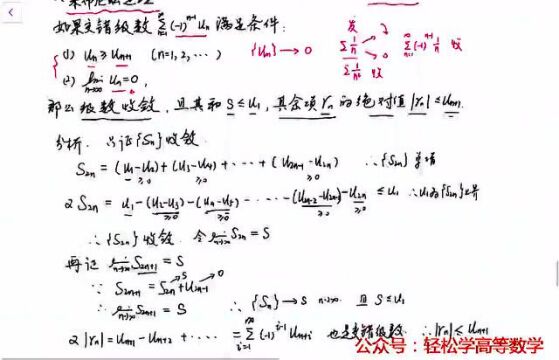 如果交错级数 ∑_{n=1}^{∞}(-1)^{n-1}u_n 满足条件:
(1) u_n ≥ u_{n+1} (n=1,2,…) {u_n}→0
(2) lim_{n→∞} u_n=0,
∑1/n → 0 ∑_{n=1}^{∞}(-1)^{n-1}1/n 收
那么级数收敛, 且其和 S≤u_1, 其余项 r_n 的绝对值 |r_n|≤u_{n+1}.
分析: 只证{S_n}收敛.
S_{2n} = (u_1-u_2)+(u_3-u_4)+…+(u_{2n-1}-u_{2n}) ∴{S_{2n}} 单增
≥0 ≥0 ≥0
又 S_{2n} = u_1-(u_2-u_3)-(u_4-u_5)-…-(u_{2n-2}-u_{2n-1})-u_{2n} ≤u_1 ∴u_1为{S_{2n}}上界
≥0 ≥0 ≥0 ≥0
∴{S_{2n}}收敛. 令 lim_{n→∞} S_{2n} = S
再证 lim_{n→∞} S_{2n+1} = S
∵ S_{2n+1} = S_{2n}+u_{2n+1}
∴ lim_{n→∞} S_{2n+1} = S ∴{S_n}→S n→∞ 且 S≤u_1
又|r_n| = u_{n+1}-u_{n+2}+… = ∑_{i=1}^{∞}(-1)^{i-1}u_{n+i} 也是交错级数. ∴|r_n|≤u_{n+1}
公众号：轻松学高等数学